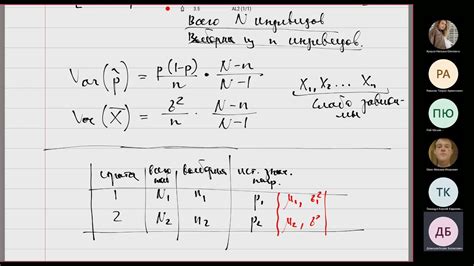 Всего N индивидов
Выборка из n индивидов.
Var(p̂) = p(1-p)/n · N-n/N-1
Var(X̄) = σ²/n · N-n/N-1
X₁, X₂ ... Xₙ
слабо зависимы
страта | всего | выборка | ист. знач.
1 | N₁ | n₁ | p₁ | μ₁, σ₁²
2 | N₂ | n₂ | p₂ | μ₂, σ²
РА
ПЮ
ТК
ДБ